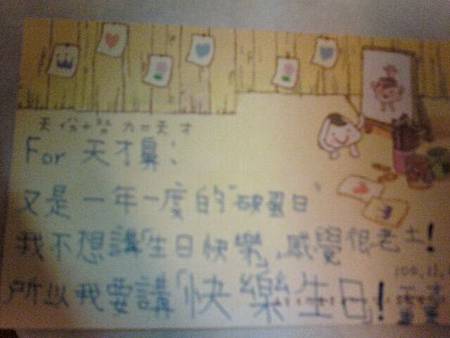 天份+努力=天才
For 天才鼻：
又是一年一度的"破蛋日"
我不想講「生日快樂」，感覺很老土！
所以我要講「快樂生日」！